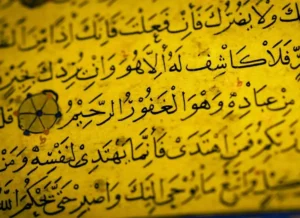 وَلَا يَضُرُّكَ فَإِنْ فَعَلْتَ فَإِنَّكَ إِذًا مِنَ
فَلَا كَاشِفَ لَهُ إِلَّا هُوَ وَإِنْ يُرِدْكَ بِخَيْرٍ
مِنْ عِبَادِهِ وَهُوَ الْغَفُورُ الرَّحِيمُ ۝ قُلْ
فَمَنِ اهْتَدَى فَإِنَّمَا يَهْتَدِي لِنَفْسِهِ وَمَنْ
وَاتَّبِعْ مَا يُوحَى إِلَيْكَ وَاصْبِرْ حَتَّى يَحْكُمَ اللهُ